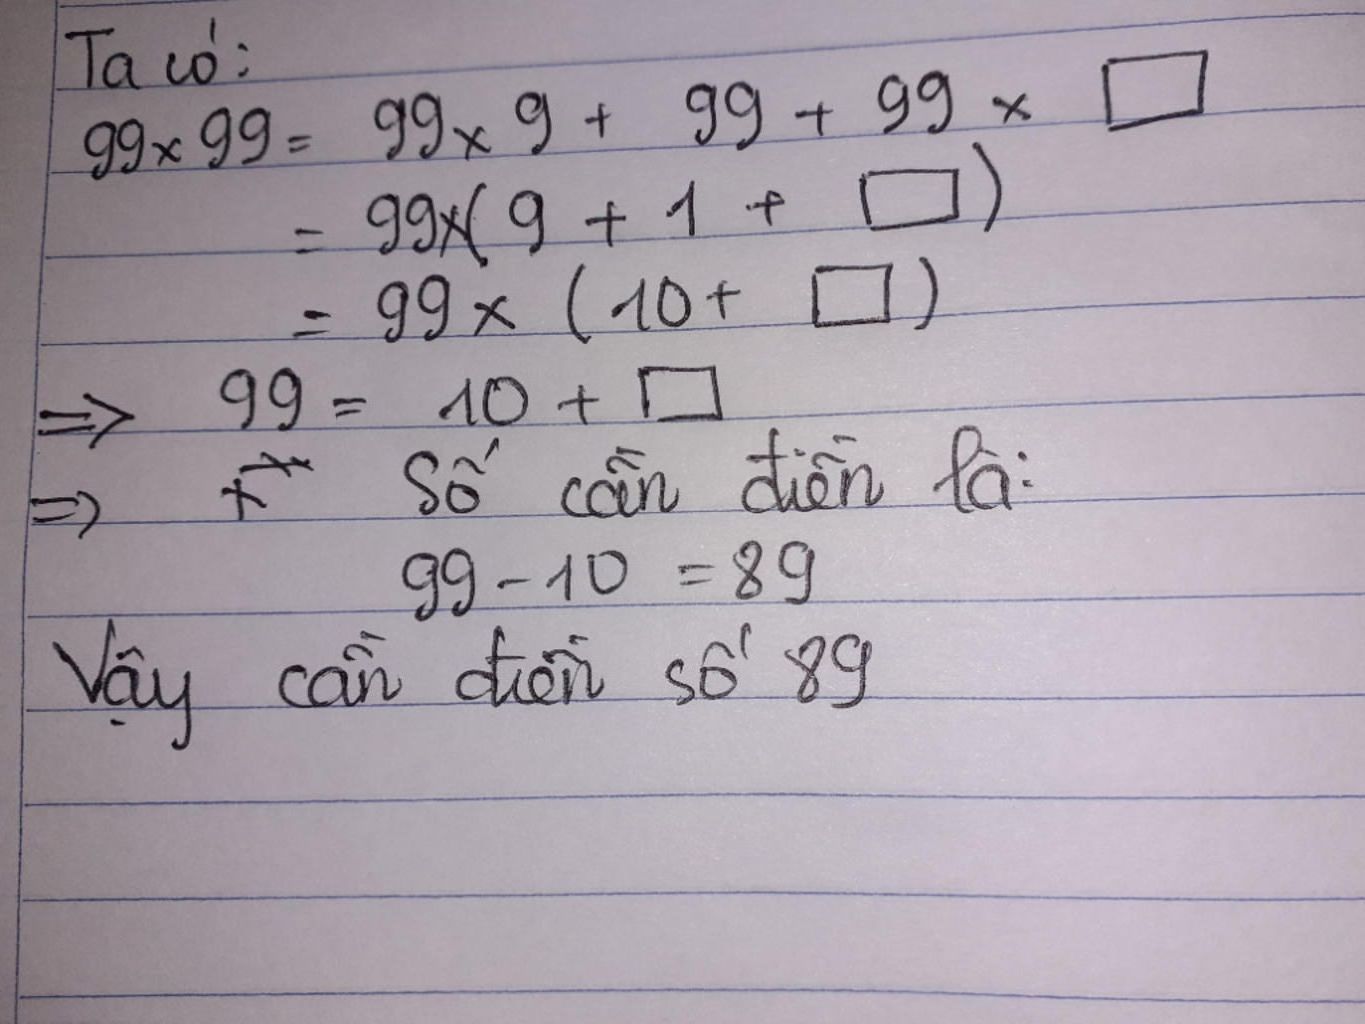 Ta có:
99 x 99 = 99 x 9 + 99 + 99 x □
= 99 x ( 9 + 1 + □ )
= 99 x ( 10 + □ )
=> 99 = 10 + □
=> Số cần điền là:
99 - 10 = 89
Vậy cần điền số 89